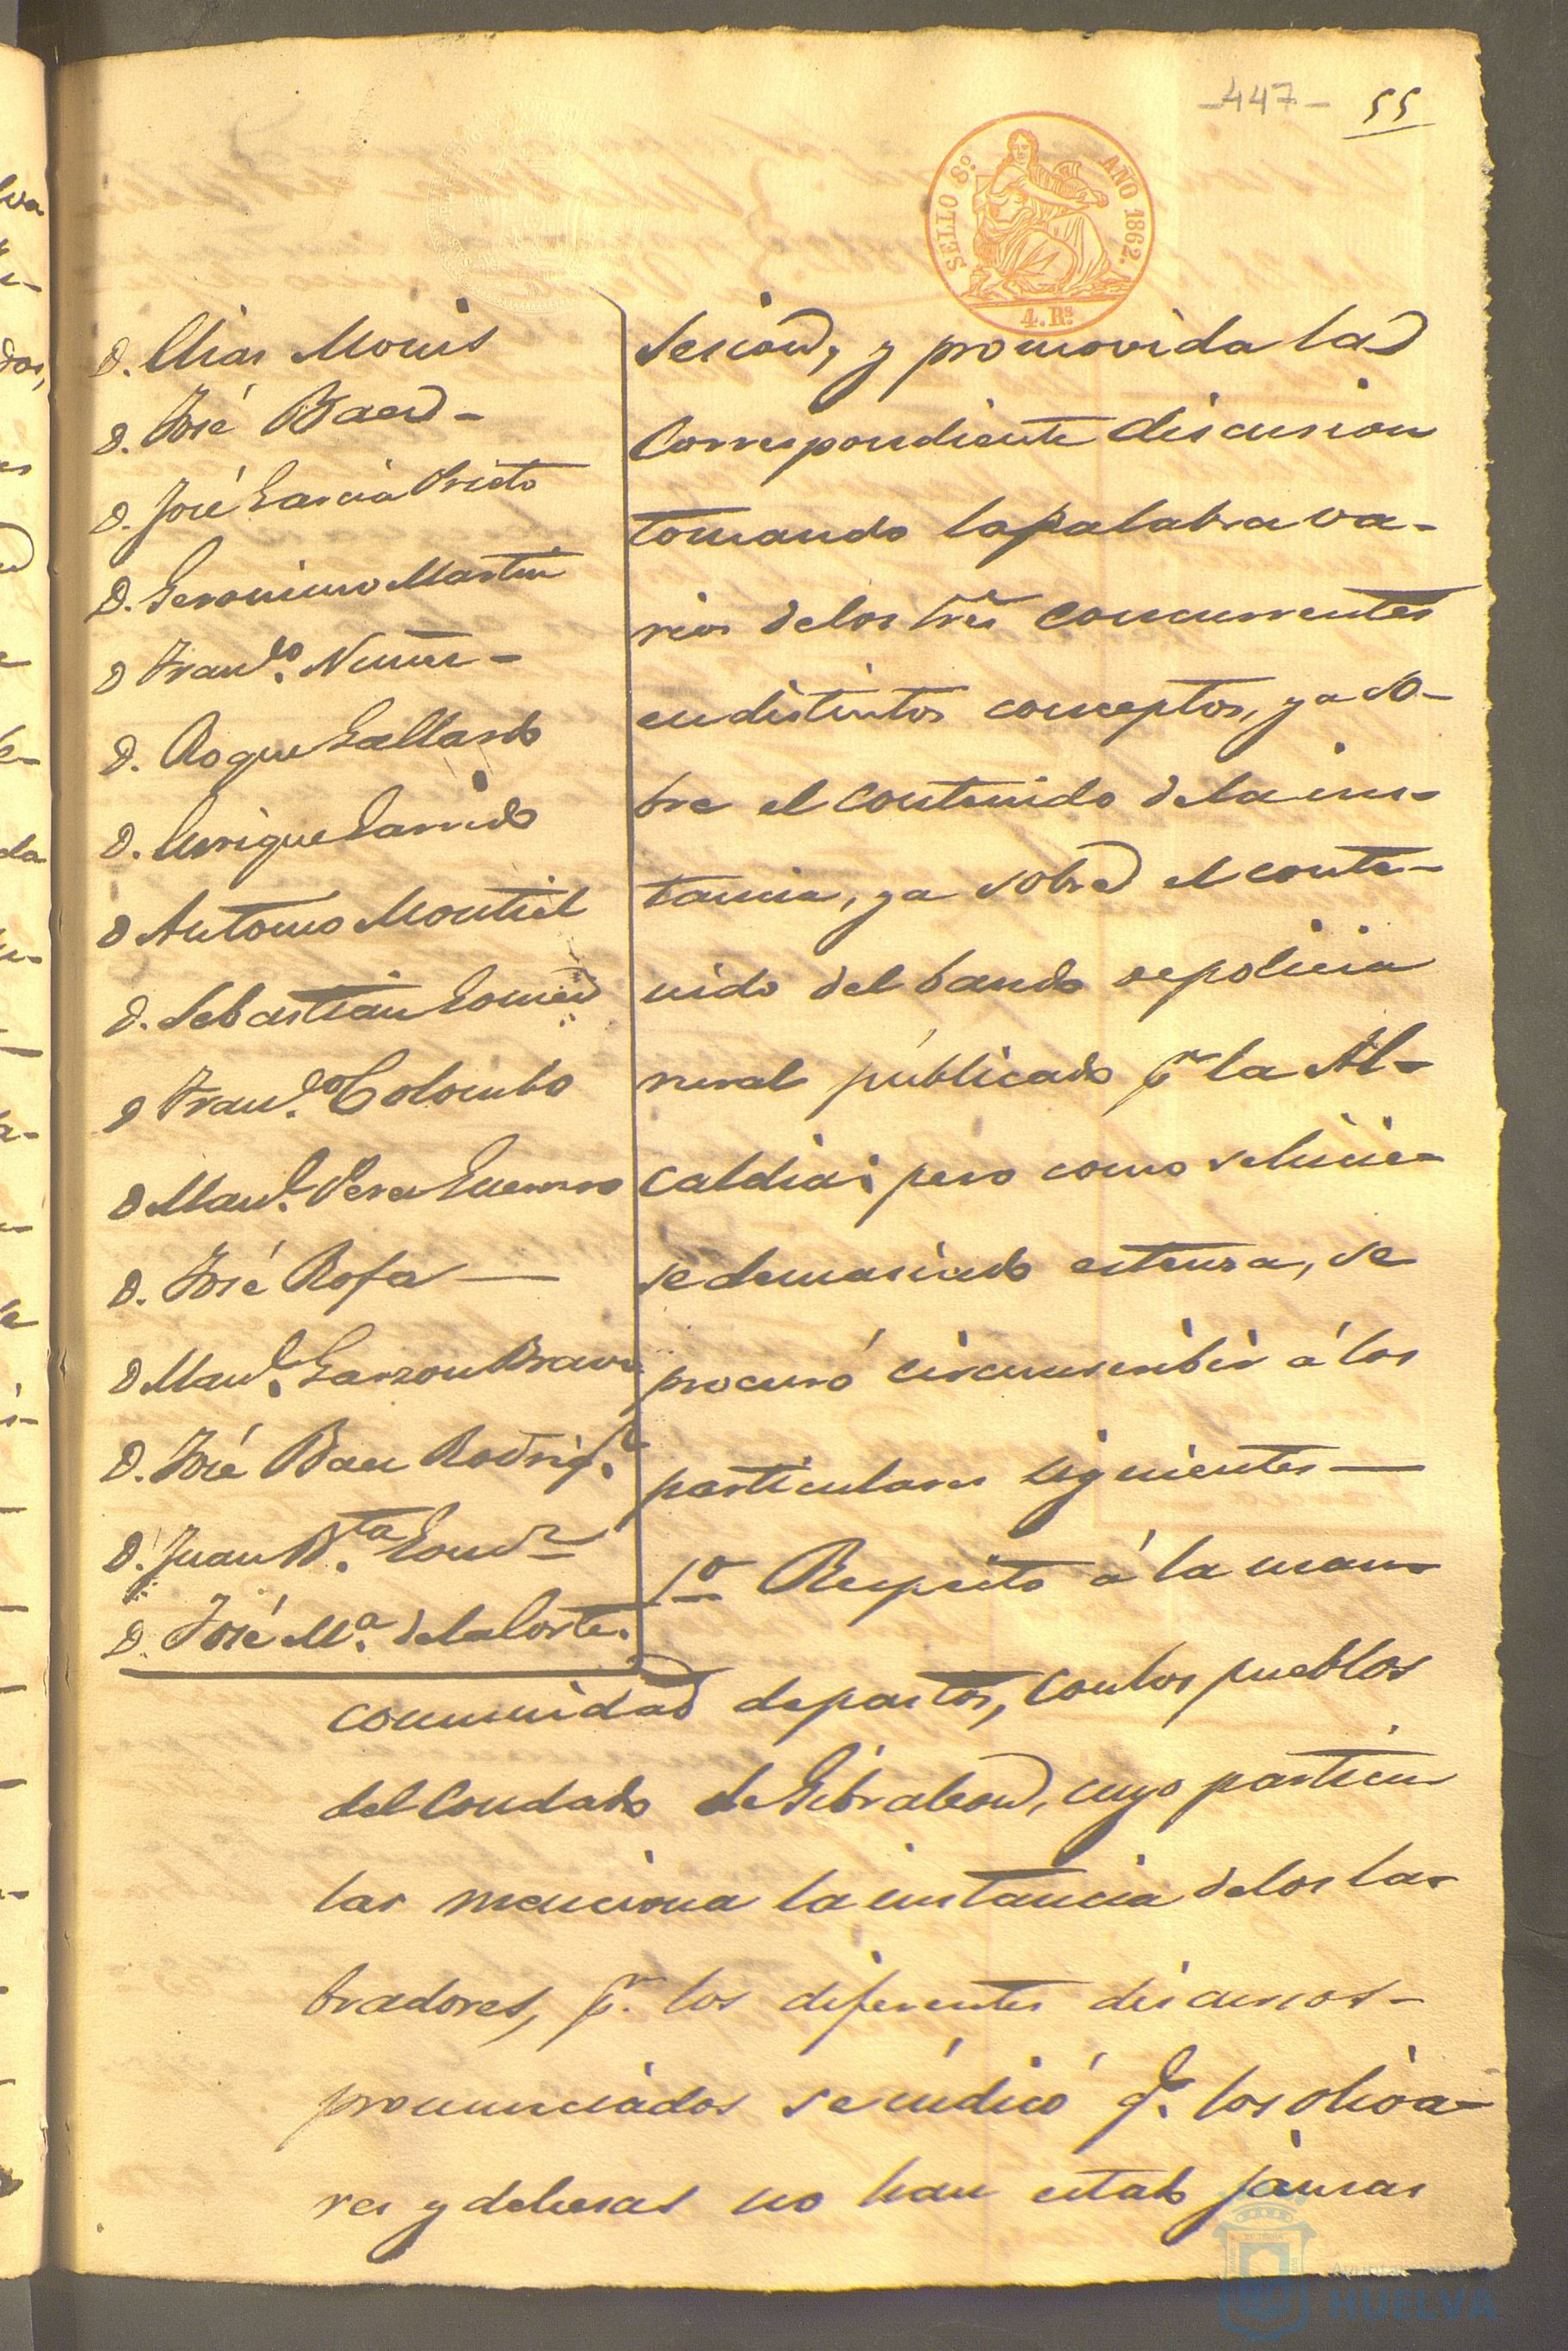 -447- 55
SELLO 8º. AÑO 1862.
4. Rs.
D. Elias Monis
D. José Baen-
D. José Garcia Prieto
D. Geronimo Martin
D Franco. Nuñes-
D. Roque Gallardo
D. Enrique Garrido
D Antonio Montiel
D. Sebastian Gomez
D Franco. Colombo
D Manl. Perez Guerrero
D. José Rofa —
D Manl. Garzon Bravo
D. José Baez Rodrigz.
D. Juan Bta. Gonz
D. José Ma. dela Corte.
sesion, y promovida la
correspondiente discusion
tomando la palabra va-
rios delos Sres concurrentes
en distintos conceptos, ya so-
bre el contenido dela ins-
tancia, ya sobre el conte-
nido del bando de policia
rural públicado pr la Al-
caldia; pero como se hicie-
se demasiado estensa, se
procuró circunscribir á los
particulares siguientes—
1o Respecto á la man-
comunidad de pastos, con los pueblos
del Condado de Gibraleon, cuyo particu-
lar menciona la instancia delos la-
bradores, pr. los diferentes discursos-
pronunciados se indicó qe. los oliva-
res y dehesas no han estado jamas
Ayuntamiento
HUELVA